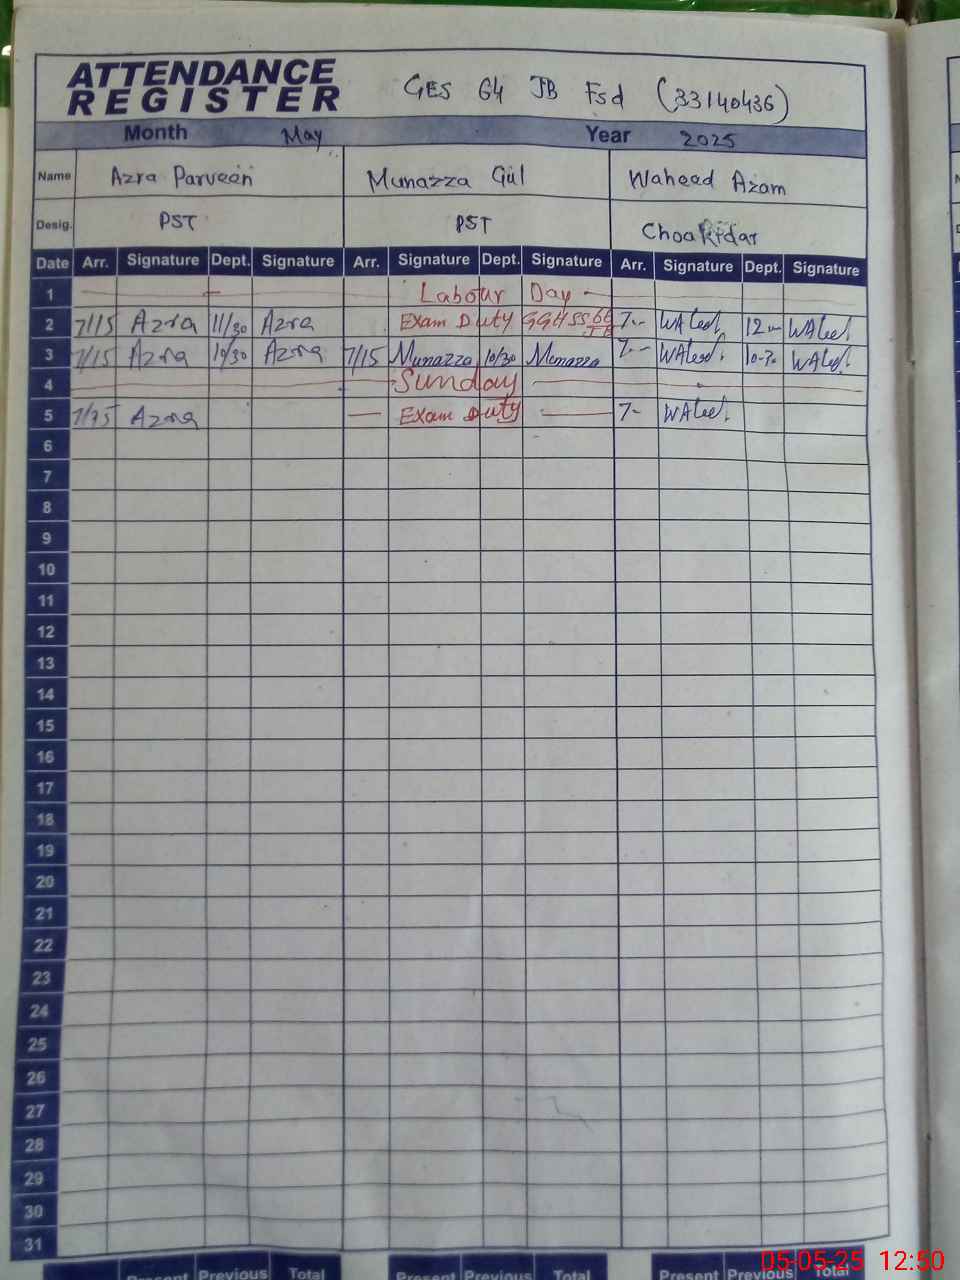 ATTENDANCE
REGISTER
GES 64 JB Fsd (33140436)
Month May Year 2025
Name Azra Parveen Munazza Gul Waheed Azam
Desig. PST PST Choakidar
Date Arr. Signature Dept. Signature Arr. Signature Dept. Signature Arr. Signature Dept. Signature
1 Labour Day
2 7/15 Azra 11/30 Azra Exam Duty GGHSS 66 JB 7-- WAleed 12-- WAleed
3 7/15 Azra 10/30 Azra 7/15 Munazza 10/30 Munazza 7-- WAleed 10-30 WAleed
4 Sunday
5 7/15 Azra Exam Duty 7- WAleed
6
7
8
9
10
11
12
13
14
15
16
17
18
19
20
21
22
23
24
25
26
27
28
29
30
31
Present Previous Total Present Previous Total Present Previous Total
05-05-25 12:50